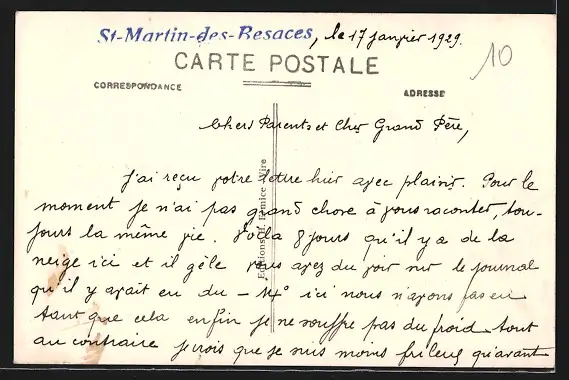 St-Martin-des-Besaces, le 17 janvier 1929.
10
CARTE POSTALE
CORRESPONDANCE
ADRESSE
Chers Parents et Cher Grand Père,
J'ai reçu votre lettre hier avec plaisir. Pour le
moment je n'ai pas grand chose à vous raconter, tou-
jours la même vie. Voila 8 jours qu'il y a de la
neige ici et il gèle vous avez du voir sur le journal
qu'il y avait eu du - 14° ici nous n'avons pas eu
tant que cela enfin je ne souffre pas du froid tout
au contraire je crois que je suis moins frileux qu'avant
Editions Vire